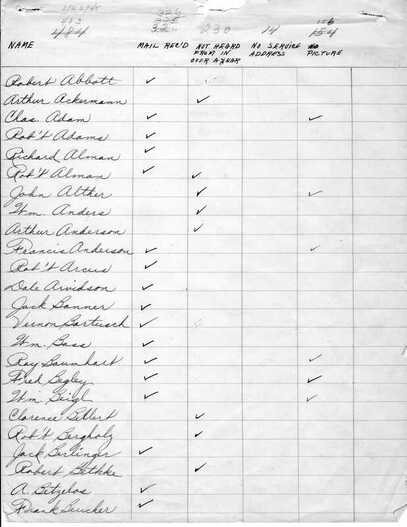 230 14
484 154
NAME MAIL REC'D NOT HEARD FROM IN OVER A YEAR NO SERVICE ADDRESS PICTURE
Robert Abbott ✓
Arthur Ackermann ✓
Chas. Adam ✓ ✓
Rob't Adams ✓
Richard Alman ✓
Rob't Alman ✓ ✓
John Alther ✓ ✓
Wm. Anders ✓
Arthur Anderson ✓
Francis Anderson ✓ ✓
Rob't Arcus ✓
Dale Arvidson ✓
Jack Banner ✓
Vernon Bartusch ✓
Wm. Bass ✓
Ray Baumhart ✓ ✓
Fred Begley ✓ ✓
Wm. Beigl ✓ ✓
Clarence Bellert ✓
Rob't Bergholz ✓
Jack Berlinger ✓
Robert Bethke ✓
A. Betzelos ✓
Frank Beucker ✓